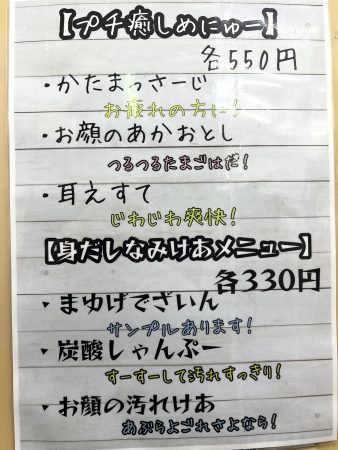 【プチ癒しめにゅー】
各550円
・かたまっさーじ
お疲れの方に!
・お顔のあかおとし
つるつるたまごはだ!
・耳えすて
じわじわ爽快!
【身だしなみけあメニュー】
各330円
・まゆげでざいん
サンプルあります!
・炭酸しゃんぷー
すーすーして汚れすっきり!
・お顔の汚れけあ
あぶらよごれさよなら!